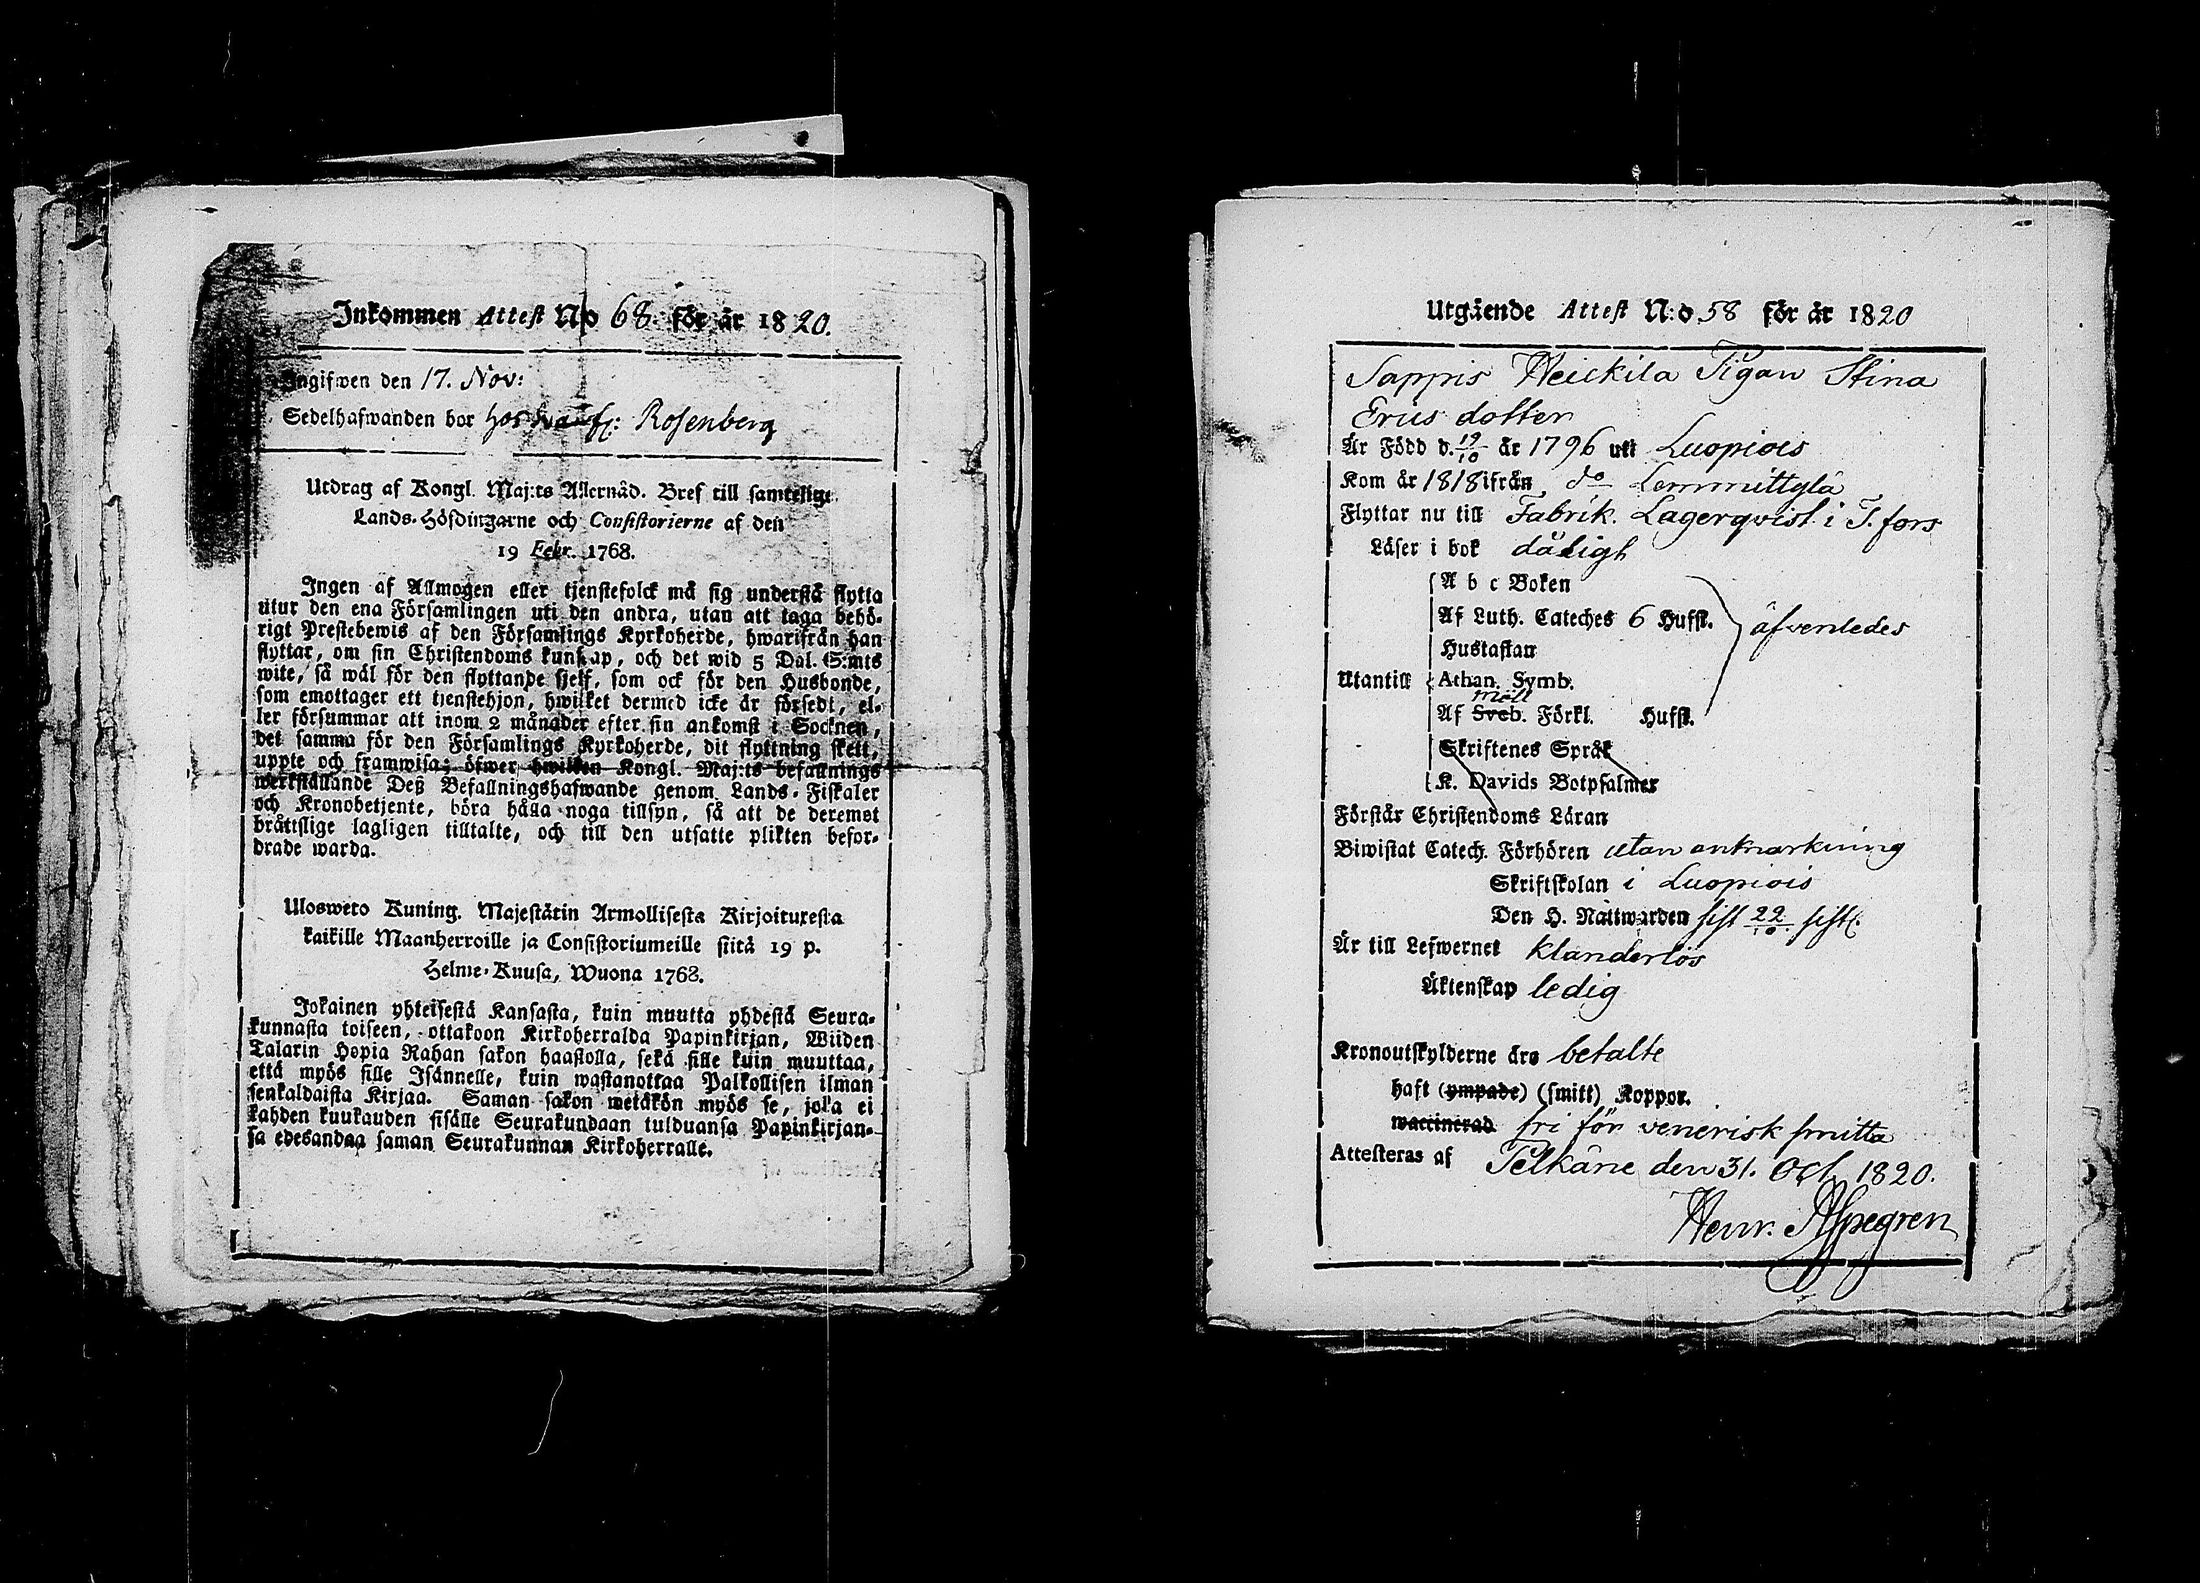 Inkommen Attest No 68 för år 1820.
Ingifwen den 17. Nov:
Sedelhafwanden bor hos Rosenberg
Utdrag af Kongl. Maj:ts Allernåd. Bref till samtelige
Lands-Höfdingarne och Consistorierne af den
19 Febr. 1768.
Ingen af Allmogen eller tjenstefolck må sig understå flytta
utur den ena Församlingen uti den andra, utan att taga behö-
rigt Prestebewis af den Församlings Kyrkoherde, hwarifrån han
flyttar, om sin Christendoms kunskap, och det wid 5 Dal. S:mts
wite, så wäl för den flyttande sjelf, som ock för den Husbonde,
som emottager ett tjenstehjon, hwilket dermed icke är försedt, el-
ler försummar att inom 2 månader efter sin ankomst i Socknen,
det samma för den Församlings Kyrkoherde, dit flyttning skett,
uppte och framwisa; öfwer hwilken Kongl. Maj:ts befallnings
werkställande Deß Befallningshafwande genom Lands-Fiskaler
och Kronobetjente, böra hålla noga tillsyn, så att de deremot
bråttslige lagligen tilltalte, och till den utsatte plikten befor-
drade warda.
Ulosweto Kuning. Majestätin Armollisesta Kirjoituxesta
kaikille Maanherroille ja Consistoriumeille siitä 19 p.
Helme-Kuusa, Wuona 1768.
Jokainen yhteisestä Kansasta, kuin muutta yhdestä Seura-
kunnasta toiseen, ottakoon Kirkoherralda Papinkirjan, Wiiden
Talarin Hopia Rahan sakon haastolla, sekä sille kuin muuttaa,
että myös sille Isännelle, kuin wastanottaa Palkollisen ilman
senkaldaista Kirjaa. Saman sakon wetäkön myös se, joka ei
kahden kuukauden sisälle Seurakundaan tulduansa Papinkirjan-
sa edesandaa saman Seurakunnan Kirkoherralle.
Utgående Attest N:o 58 för år 1820
Sappis Heickila Pigan Stina
Erics dotter
Är Född d. 19/10 år 1796 uti Luopiois
Kom år 1818 ifrån do Lemmittylä
Flyttar nu till Fabrik. Lagerqvist i T. fors
Läser i bok dåligt
A b c Boken
Af Luth. Cateches 6 Hufst. äfvenledes
Hustaflan
Utantill Athan. Symb.
möll
Af Sveb. Förkl. Hufst.
Skriftenes Språk
K. Davids Botpsalmer
Förstår Christendoms Läran
Biwistat Catech. Förhören utan anmärkning
Skriftskolan i Luopiois
Den H. Nattwarden sist 22/10 sistl.
Är till Lefwernet klanderlös
Äktenskap ledig
Kronoutskylderne äro betalte
haft (ympade) (smitt) Koppor.
waccinerad fri för venerisk smitta
Attesteras af Pelkäne den 31. Oct. 1820.
Henr. Aspegren